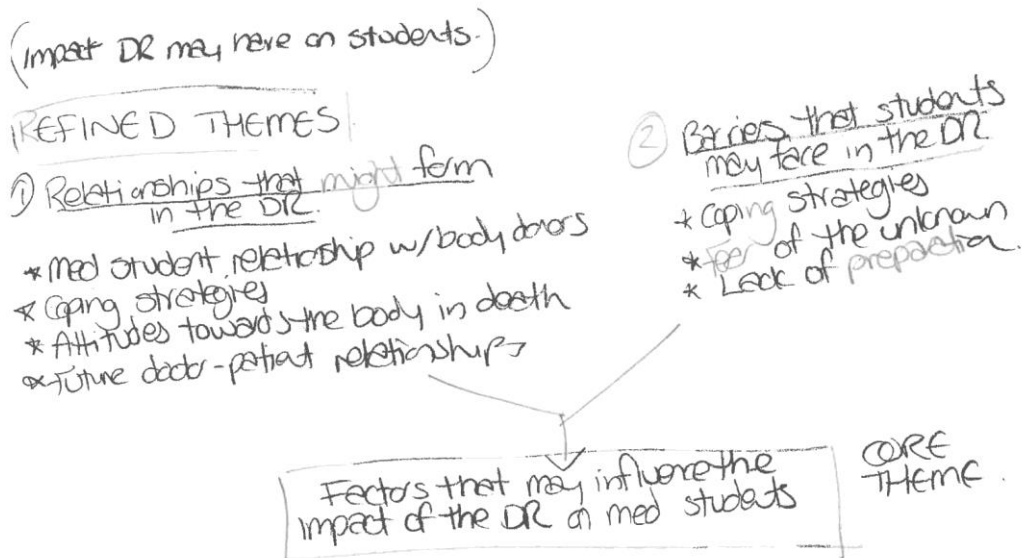 (Impact DR may have on students.)
REFINED THEMES
① Relationships that might form
in the DR.
* Med student relationship w/body donors
* Coping strategies
* Attitudes towards the body in death
* Future doctor-patient relationships
② Barries that students
may face in the DR
* Coping strategies
* Fear of the unknown
* Lack of preparation.
Factors that may influence the
impact of the DR on med students
CORE
THEME.